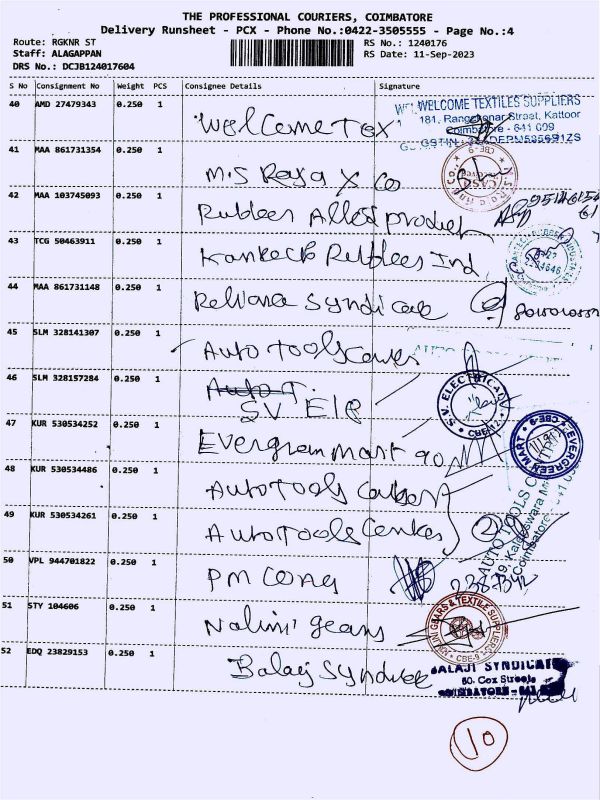 THE PROFESSIONAL COURIERS, COIMBATORE
Delivery Runsheet - PCX - Phone No.:0422-3505555 - Page No.:4
Route: RGKNR ST
RS No.: 1240176
Staff: ALAGAPPAN
RS Date: 11-Sep-2023
DRS No.: DCJB124017604
S No Consignment No Weight PCS Consignee Details Signature
40 AMD 27479343 0.250 1
Welcome Tex
WELCOME TEXTILES SUPPLIERS
Street, Kattoor
Coimbatore - 641 009
41 MAA 861731354 0.250 1
M.S Raja X Co
42 MAA 103745093 0.250 1
Rubber Allied product
43 TCG 50463911 0.250 1
Kantech Rubbers Ind
44 MAA 861731148 0.250 1
Reliana Syndicate
45 SLM 328141307 0.250 1
Auto Tools
46 SLM 328157284 0.250 1
SV Ele
S.V. ELECTRICAL
CBE-12
47 KUR 530534252 0.250 1
Evergreen mart
EVERGREEN MART
CBE-9
48 KUR 530534486 0.250 1
Auto Tools
49 KUR 530534261 0.250 1
Auto Tools Center
AUTO TOOLS
Coimbatore
50 VPL 944701822 0.250 1
PM
51 STY 104606 0.250 1
Nalini gears
NALINI GEARS & TEXTILE SUPPLIERS
CBE-9
52 EDQ 23829153 0.250 1
Balaji Syndicate
BALAJI SYNDICATE
60. Cox Street,
COIMBATORE - 641
10